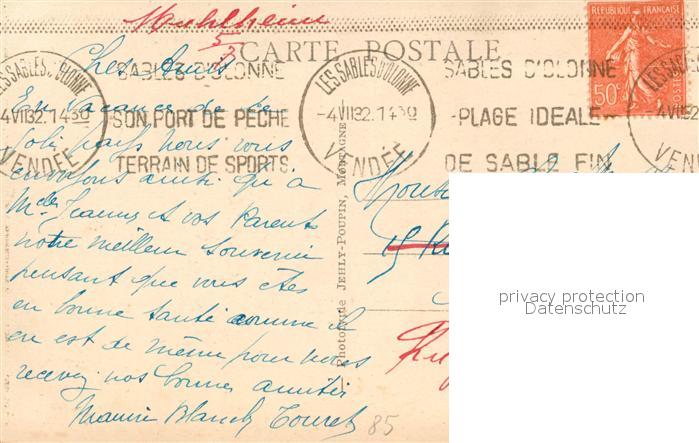 Muhlheim
5/3
CARTE POSTALE
REPUBLIQUE FRANÇAISE
50c
POSTES
LES SABLES D'OLONNE
4 VII 32. 1430
VENDÉE
SABLES D'OLONNE
SON PORT DE PECHE
TERRAIN DE SPORTS.
LES SABLES D'OLONNE
-4 VII 32. 1430
VENDÉE
SABLES D'OLONNE
-PLAGE IDEALE-
DE SABLE FIN
LES SABLES D'OLONNE
4 VII 32. 1430
VENDÉE
Chers Amis
En vacances de ce
joli pays nous vous
envoyons ainsi qu'a
Mde Jeanne et vos Parents
notre meilleur souvenir
pensant que vous êtes
en bonne santé comme il
en est de même pour nous
recevez nos bonnes amitiés
Maurice Blanch Touret
Phototypie JEHLY-POUPIN, MORTAGNE
15
85
privacy protection
Datenschutz